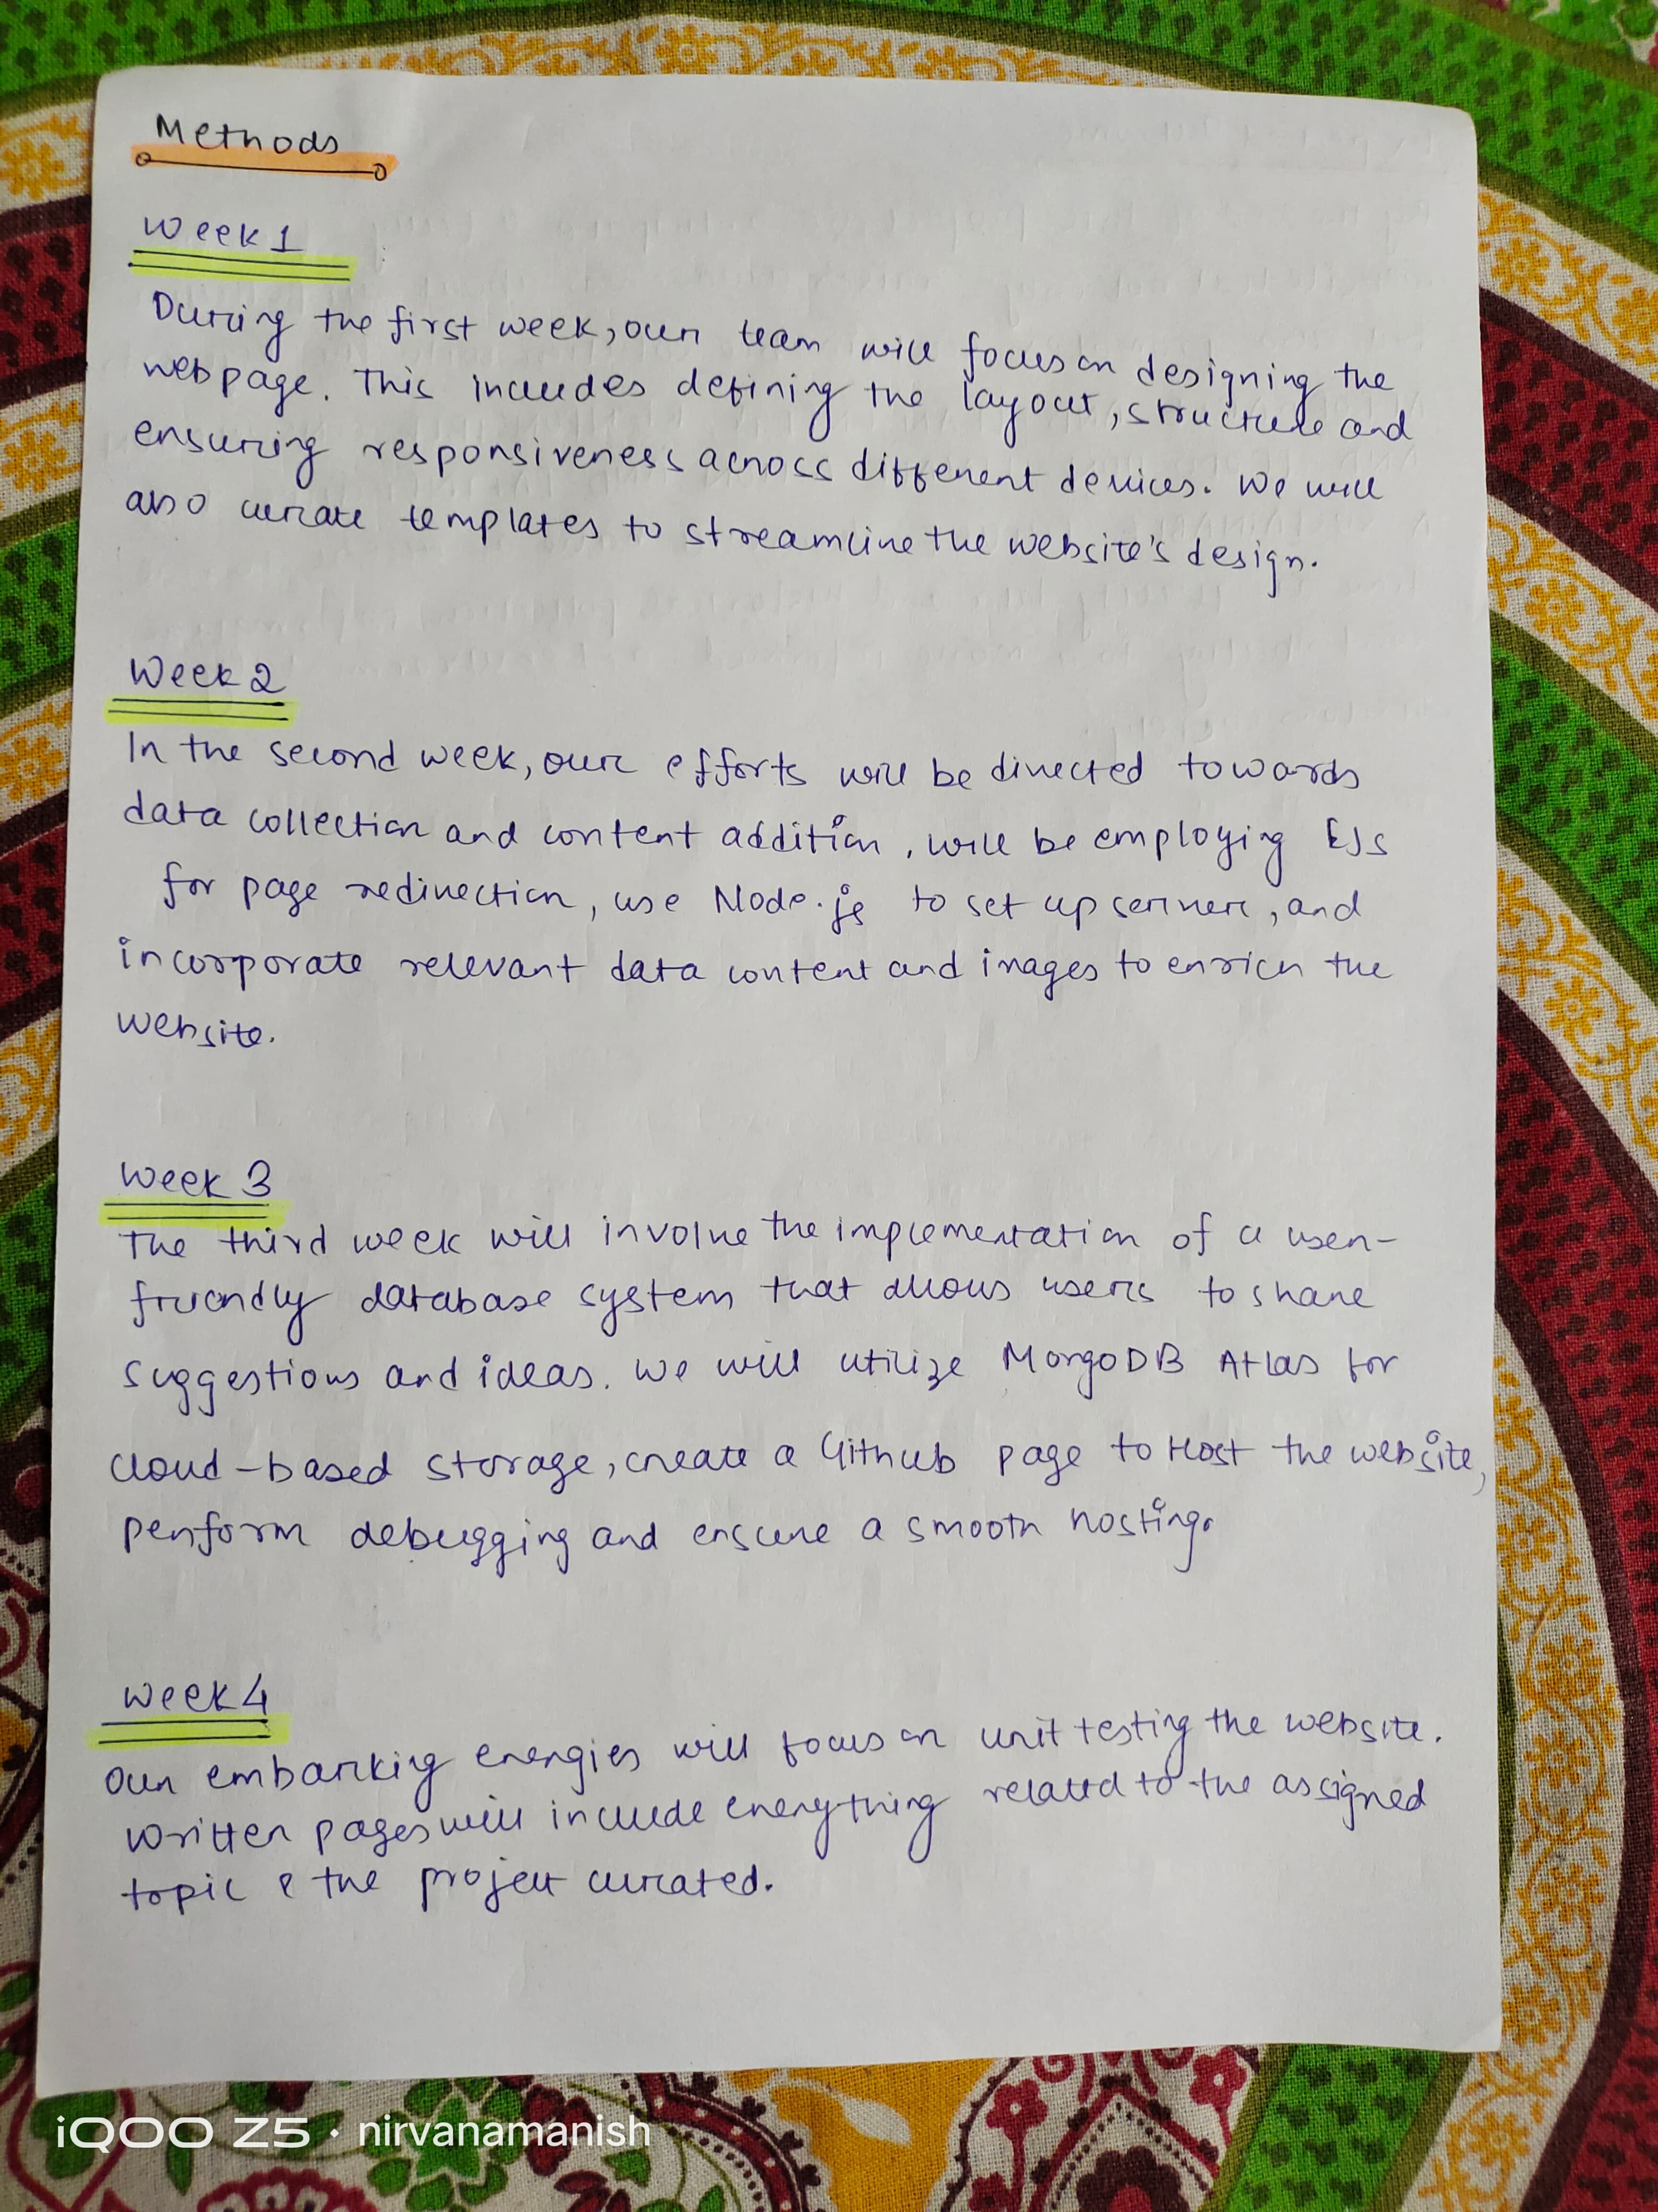 Methods
Week 1
During the first week, our team will focus on designing the
webpage. This includes defining the layout, structure and
ensuring responsiveness across different devices. We will
also curate templates to streamline the website's design.
Week 2
In the second week, our efforts will be directed towards
data collection and content addition, will be employing EJS
for page redirection, use Node.js to set up server, and
incorporate relevant data content and images to enrich the
website.
Week 3
The third week will involve the implementation of a user-
friendly database system that allows users to share
suggestions and ideas. We will utilize MongoDB Atlas for
cloud-based storage, create a Github page to Host the website,
perform debugging and ensure a smooth hosting.
Week 4
Our embarking energies will focus on unit testing the website.
Written pages will include everything related to the assigned
topic & the project curated.
iQOO Z5 · nirvanamanish